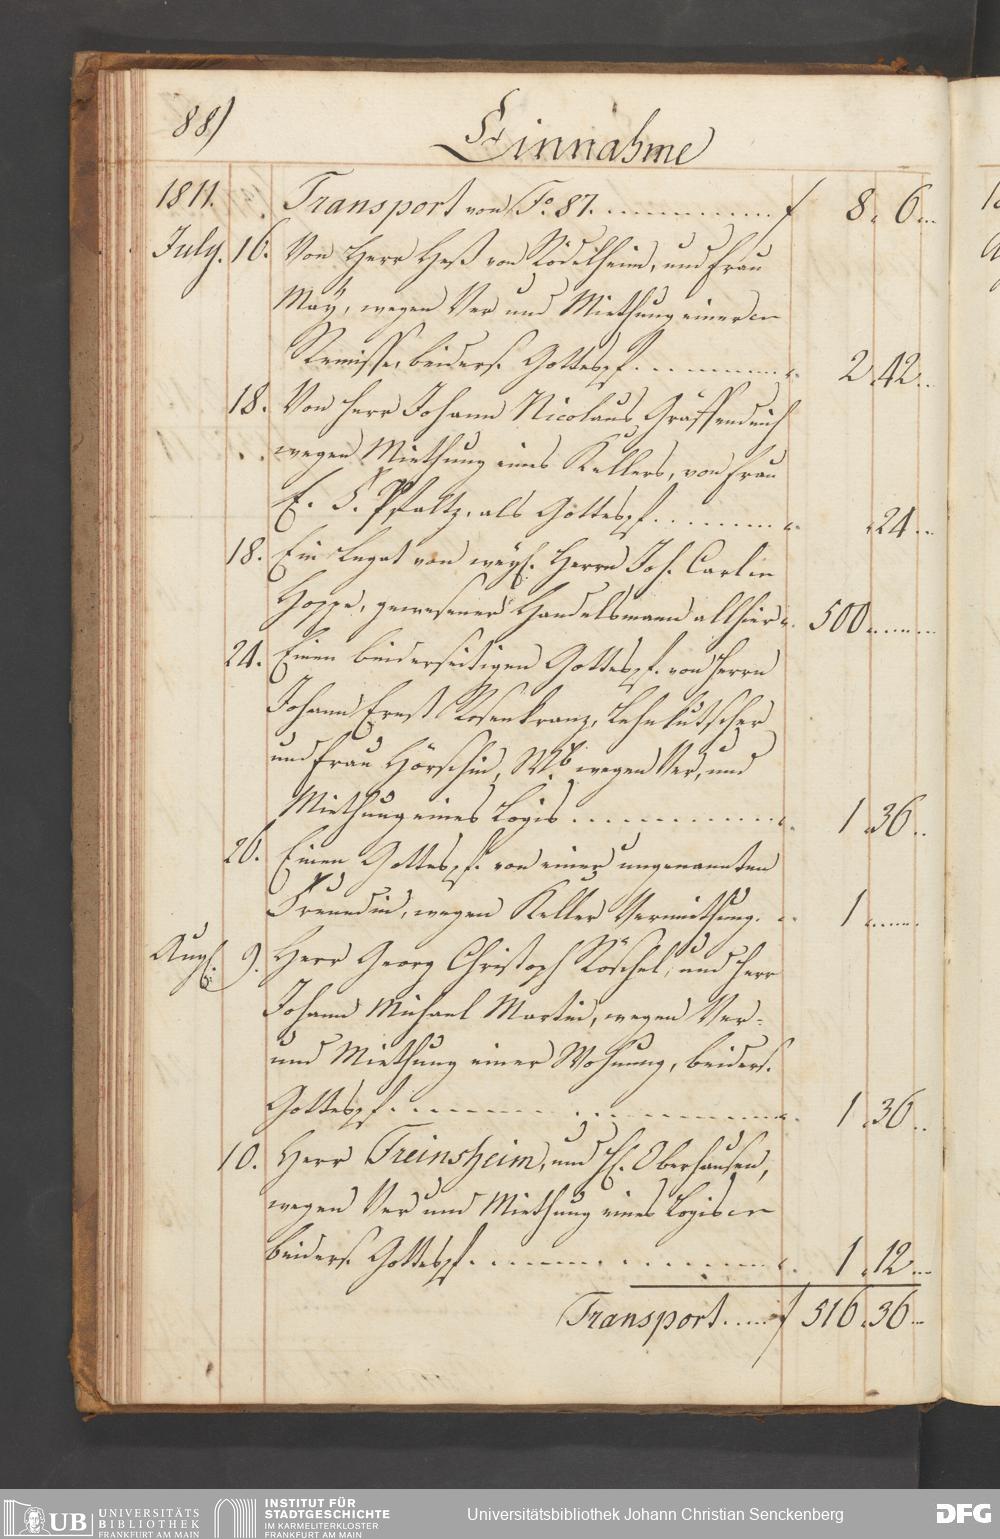 88)
Einnahme
1811. Transport von Fo. 87. . . . . . . . . . . . . f 8. 6...
July. 16. Von Herr Heß von Rödelheim, und Frau
May, wegen Ver und Miethung einer
Remisse, beiders. Gottespf. . . . . . . . . . „ 2.42..
18. Von Herr Johann Nicolaus Gräffendeich
wegen Miethung eines Kellers, von Frau
E. S. Pfaltz. als Gottespf. . . . . . . . . „ .24...
18. Ein Legat von weyl. Herrn Joh. Carl
Hoppe, gewesener Handelsmann allhier „ 500.......
24. Einen beiderseitigen Gottespf. von Herrn
Johann Ernst Rosenkranz, Lehnkutscher
und Frau Hörschin, Wb. wegen Ver, und
Miethung eines Logis . . . . . . . . . . . . „ 1.36..
26. Einen Gottespf. von einer ungenannten
Freundin, wegen Keller Vermiethung. „ 1......
Aug. 9. Herr Georg Christoph Röschel, und Herr
Johann Michael Martin, wegen Ver-
und Miethung einer Wohnung, beiders.
Gottespf. . . . . . . . . . . . . . . . . „ 1.36..
10. Herr Treinsheim, und H. Oberhausen,
wegen Ver und Miethung eines Logis
beiders. Gottespf. . . . . . . . . . . . . „ 1.12...
Transport..... f 516.36...
UB UNIVERSITÄTS
BIBLIOTHEK
FRANKFURT AM MAIN
INSTITUT FÜR
STADTGESCHICHTE
IM KARMELITERKLOSTER
FRANKFURT AM MAIN
Universitätsbibliothek Johann Christian Senckenberg
DFG